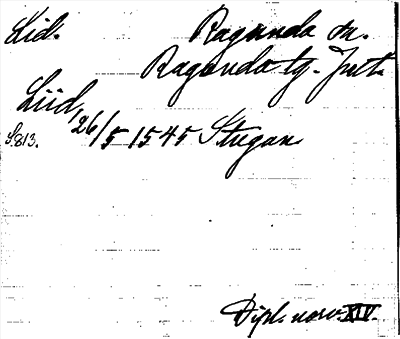 Lid. Ragunda sn.
Ragunda tg. Jmtl.
Liid, 26/5 1545 Stugan
S. 813.
Dipl. norv. XIV.